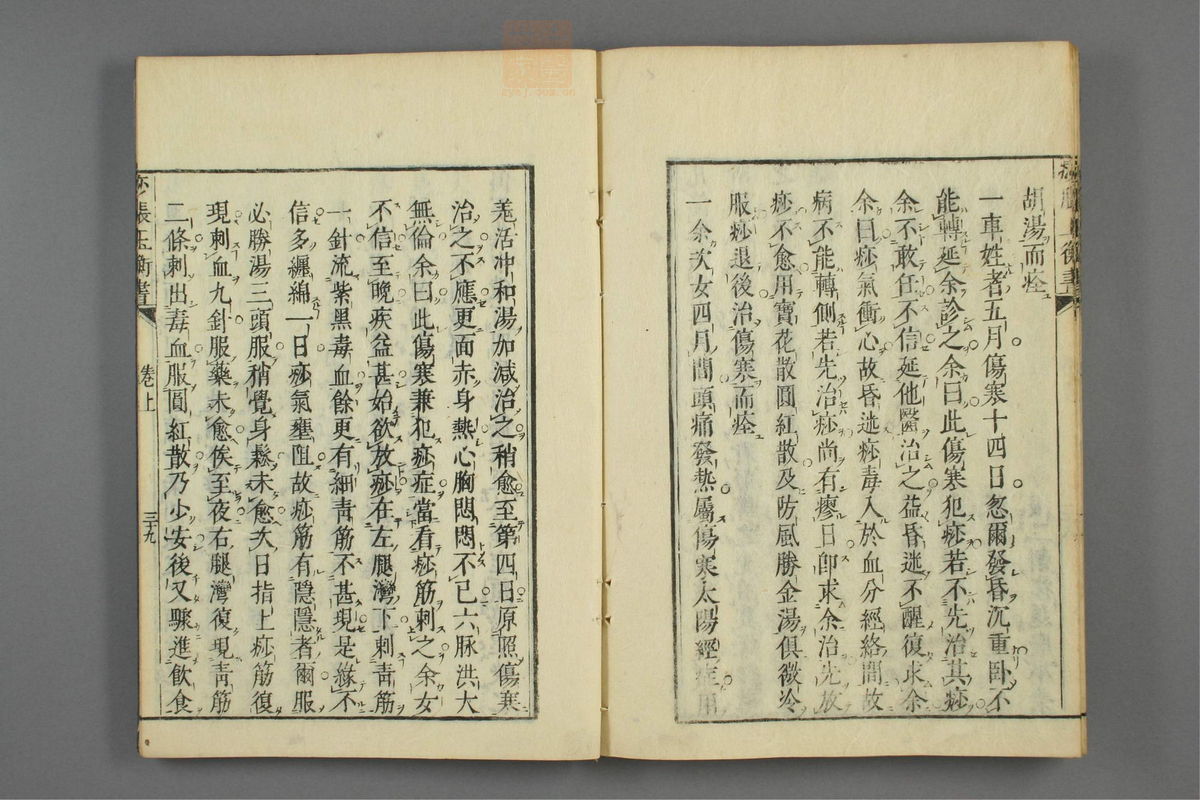 胡湯而痊
一車姓者五月傷寒十四日忽爾發昏沉重卧不
能轉延余診之余曰此傷寒犯痧若不先治其痧
余不敢任不信延他醫治之益昏迷不醒復求余
余曰痧氣衝心故昏迷痧毒入於血分經絡間故
病不能轉側若先治痧尚有瘳日卽求余治先放
痧不愈用寶花散圓紅散及防風勝金湯俱微冷
服痧退後治傷寒而痊
一余次女四月間頭痛發熱屬傷寒太陽經症用
羗活冲和湯加減治之稍愈至第四日原照傷寒
治之不應更面赤身熱心胸悶悶不已六脉洪大
無倫余曰此傷寒兼犯痧症當看痧筋刺之余女
不信至晚疾益甚始欲放痧在左腿灣下刺靑筋
一針流紫黑毒血餘更有細靑筋不甚現是緣不
信多纏綿一日痧氣壅阻故痧筋有隱隱者爾服
必勝湯三頭服稍覺身鬆未愈次日指上痧筋復
現刺血九針服藥未愈俟至夜右腿灣復現靑筋
二條刺出毒血服圓紅散乃少安後又驟進飮食
痧脹玉衡書
卷上
三十九